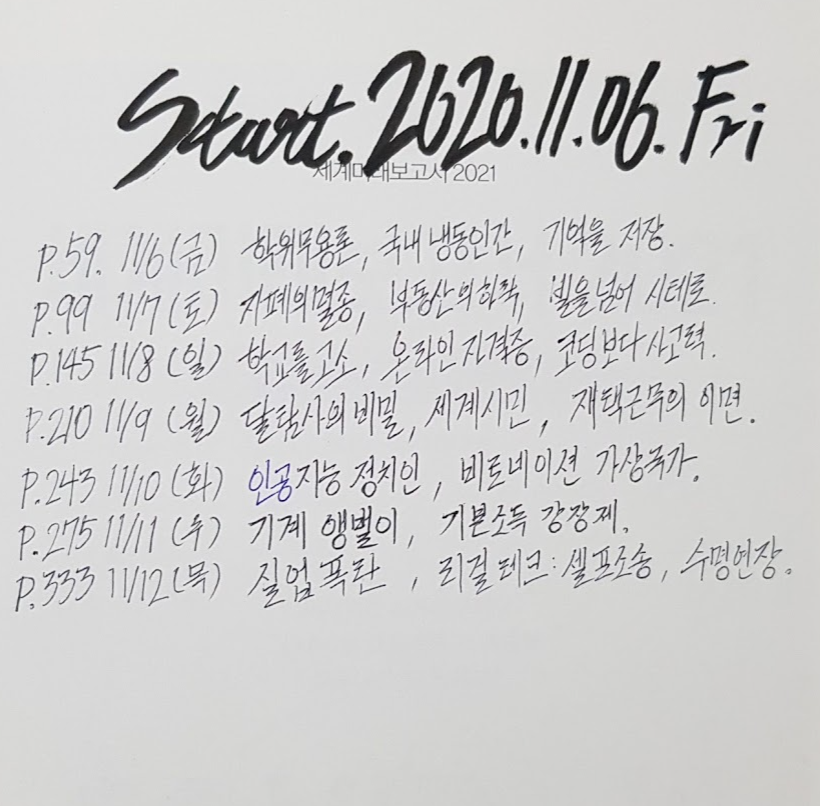 Start. 2020.11.06. Fri
세계미래보고서 2021
P.59. 11/6 (금) 학위무용론, 국내 냉동인간, 기억을 저장.
P.99 11/7 (토) 지폐의 멸종, 부동산의 하락, 빌을 넘어 시테로.
P.145 11/8 (일) 학교를 고소, 온라인 자격증, 코딩보다 사고력.
P.210 11/9 (월) 달탐사의 비밀, 세계시민, 재택근무의 이면.
P.243 11/10 (화) 인공지능 정치인, 비트네이션 가상국가.
P.275 11/11 (수) 기계 앵벌이, 기본소득 강장제.
P.333 11/12 (목) 실업 폭탄, 리걸테크: 셀프소송, 수명연장.